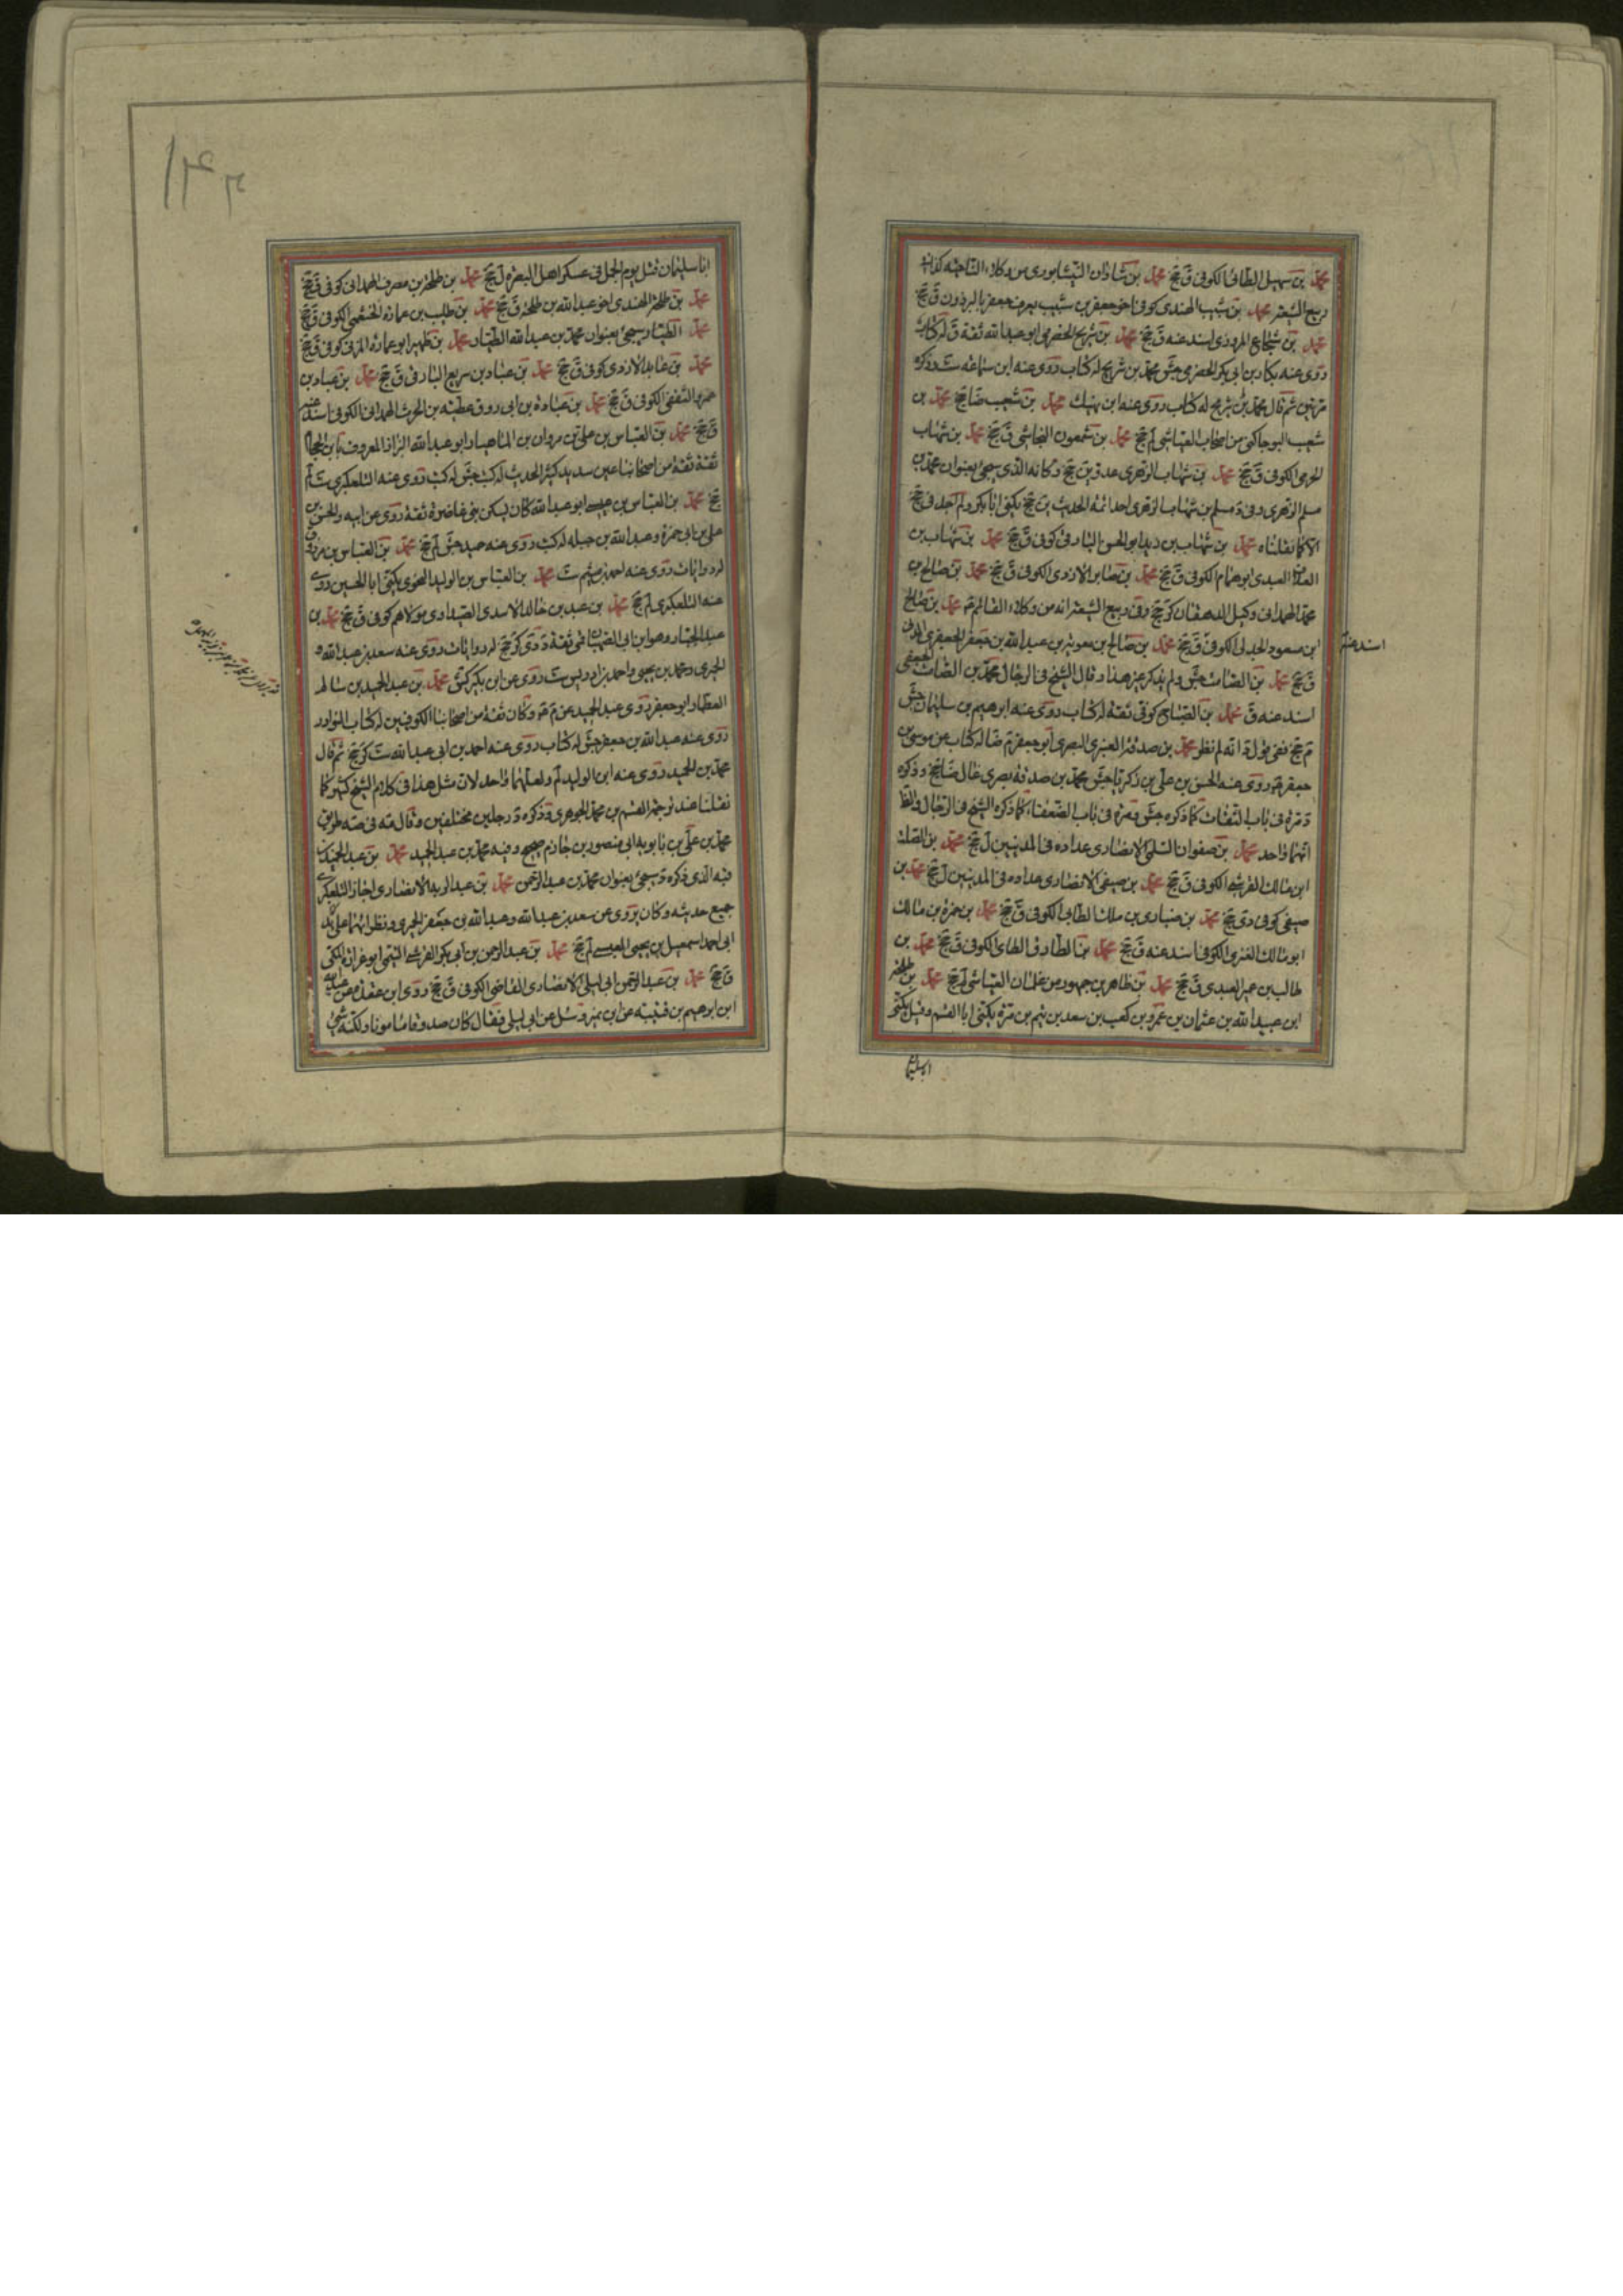 محمد بن سهيل الطائي الكوفي ق جخ محمد بن شاذان النيشابوري من وكلاء الناحيه كذا في
ربيع الشيعة محمد بن شبيب الهندي كوفي اخو جعفر بن شبيب يعرف جعفر بالبرذون ق جخ
محمد بن شجاع المروذي اسند عنه ق جخ محمد بن شريح الحضرمي ابو عبد الله ثقة ق له كتاب
روى عنه بكار بن ابي بكر الحضرمي جش محمد بن شريح له كتاب روى عنه ابن سماعه ست وذكره
مرتين ثم قال محمد بن شريح له كتاب روى عنه ابن نهيك محمد بن شعيب ضا جخ محمد بن
شعيب ابو جاكني من اصحاب العياشي لم جخ محمد بن شمعون النجاشي ق جخ محمد بن شهاب
الجرمي الكوفي ق جخ محمد بن شهاب الزهري عدو ين جخ وكانه الذي سيجئ بعنوان محمد بن
مسلم الزهري وفي د مسلم بن شهاب الزهري احد ائمه الحديث ين جخ يكنى ابا بكر ولم اجد في جخ
الا كما نقلناه محمد بن شهاب بن زيد ابو الحسن البارقي كوفي ق جخ محمد بن شهاب بن
العبدي ابو همام الكوفي ق جخ محمد بن صابر الازدي الكوفي ق جخ محمد بن صالح بن
محمد الهمداني وكيل الدهقان كر جخ وفي ربيع الشيعة انه من وكلاء القائم ع محمد بن صالح
ابن مسعود الجدلي الكوفي ق جخ محمد بن صالح بن معوية بن عبد الله بن جعفر الجعفري المدني
اسند عنه
ق جخ محمد بن الصامت جش ولم يذكر غير هذا وقال الشيخ في الرجال محمد بن الصامت الجعفي
اسند عنه ق محمد بن الصباح كوفي ثقة له كتاب روى عنه ابرهيم بن سليمان جش
م جخ ففي قول د انه لم نظر محمد بن صدقة العنبري البصري ابو جعفر م ضا له كتاب عن موسى بن
جعفر ع روى عنه الحسن بن علي بن زكريا جش محمد بن صدقة بصري غال ضا جخ وذكره
د مرة في باب الثقات كما ذكره جش ومرة في باب الضعفاء كما ذكره الشيخ في الرجال والظ
انهما واحد محمد بن صفوان السلمي الانصاري عداده في المدنيين ل جخ محمد بن الصلت
ابن مالك القرشي الكوفي ق جخ محمد بن صيفي الانصاري عداده في المدنيين ل جخ محمد بن
صيفي كوفي دي جخ محمد بن ضباري بن مالك الطائي الكوفي ق جخ محمد بن ضمرة بن مالك
ابو مالك الغنوي الكوفي اسند عنه ق جخ محمد بن الطارق الطائي الكوفي ق جخ محمد بن
طالب بن عمير العبدي ق جخ محمد بن طاهر بن جمهور من غلمان العياشي لم جخ محمد بن طلحة
ابن عبيد الله بن عثمان بن عمرو بن كعب بن سعد بن تيم بن مرة يكنى ابا القسم وقيل يكنى
ابا سليمان
ابا سليمان قتل يوم الجمل في عسكر اهل البصره ل جخ محمد بن طلحة بن مصرف الهمداني كوفي ق جخ
محمد بن طلحة النهدي اخو عبد الله بن طلحة ق جخ محمد بن طليب بن عمارة الخثعمي الكوفي ق جخ
محمد الطيار سيجئ بعنوان محمد بن عبد الله الطيار محمد بن ظهير ابو عماره المزني كوفي ق جخ
محمد بن عابد الازدي كوفي ق جخ محمد بن عباد بن سريع البارقي ق جخ محمد بن عباد بن
عمرو الثقفي الكوفي ق جخ محمد بن عباده بن ابي روق عطيه بن الحرث الهمداني الكوفي اسند عنه
ق جخ محمد بن العباس بن علي بن مروان بن الماهيار ابو عبد الله البزاز المعروف بابن الجحام
ثقة ثقة من اصحابنا عين سديد كثير الحديث له كتب جش له كتب روى عنه التلعكبري ست لم
جخ محمد بن العباس بن عيسى ابو عبد الله كان يسكن بني غاضرة ثقة روى عن ابيه والحسن بن
علي بن ابي حمزة وعبد الله بن جبله له كتب روى عنه حميد جش لم جخ محمد بن العباس بن مرزوق
له روايات روى عنه احمد بن ميثم ست محمد بن العباس بن الوليد النحوي يكنى ابا الحسين روى
عنه التلعكبري لم جخ محمد بن عبد بن خالد الاسدي الصيداوي مولاهم كوفي ق جخ محمد بن
عبد الجبار وهو ابن ابي الصهبان قمي ثقة د دي كر جخ له روايات روى عنه سعد بن عبد الله و
الحميري ومحمد بن يحيى واحمد بن ادريس ست روى عن ابن بكير كش محمد بن عبد الحميد بن سالم
العطار ابو جعفر روى عبد الحميد عن م ع وكان ثقة من اصحابنا الكوفيين له كتاب النوادر
روى عنه عبد الله بن جعفر جش له كتاب روى عنه احمد بن ابي عبد الله ست كر جخ ثم قال
محمد بن عبد الحميد روى عنه ابن الوليد لم ولعلهما واحد لان مثل هذا في كلام الشيخ كثير كما
نقلنا عند ترجمة القسم بن محمد الجوهري وذكره د رجلين مختلفين وقال مه في صه طريق
محمد بن علي بن بابويه الى منصور بن حازم صحيح وفيه محمد بن عبد الحميد محمد بن عبد الحميد
فيه الذي ذكره د سيجئ بعنوان محمد بن عبد الرحمن محمد بن عبد ربه الانصاري اجاز التلعكبري
جميع حديثه وكان يروي عن سعد بن عبد الله وعبد الله بن جعفر الحميري ونظرائهما على يد
ابي احمد اسمعيل بن يحيى العبسي لم جخ محمد بن عبد الرحمن بن ابي بكر القرشي التيمي ابو غرارة المكي
ق جخ محمد بن عبد الرحمن ابي ليلى الانصاري القاضي الكوفي ق جخ روى ابن عقدة عن عبد الله
ابن ابرهيم بن قتيبه عن ابن نمير وسئل عن ابي ليلى فقال كان صدوقا مأمونا ولكنه سيئ